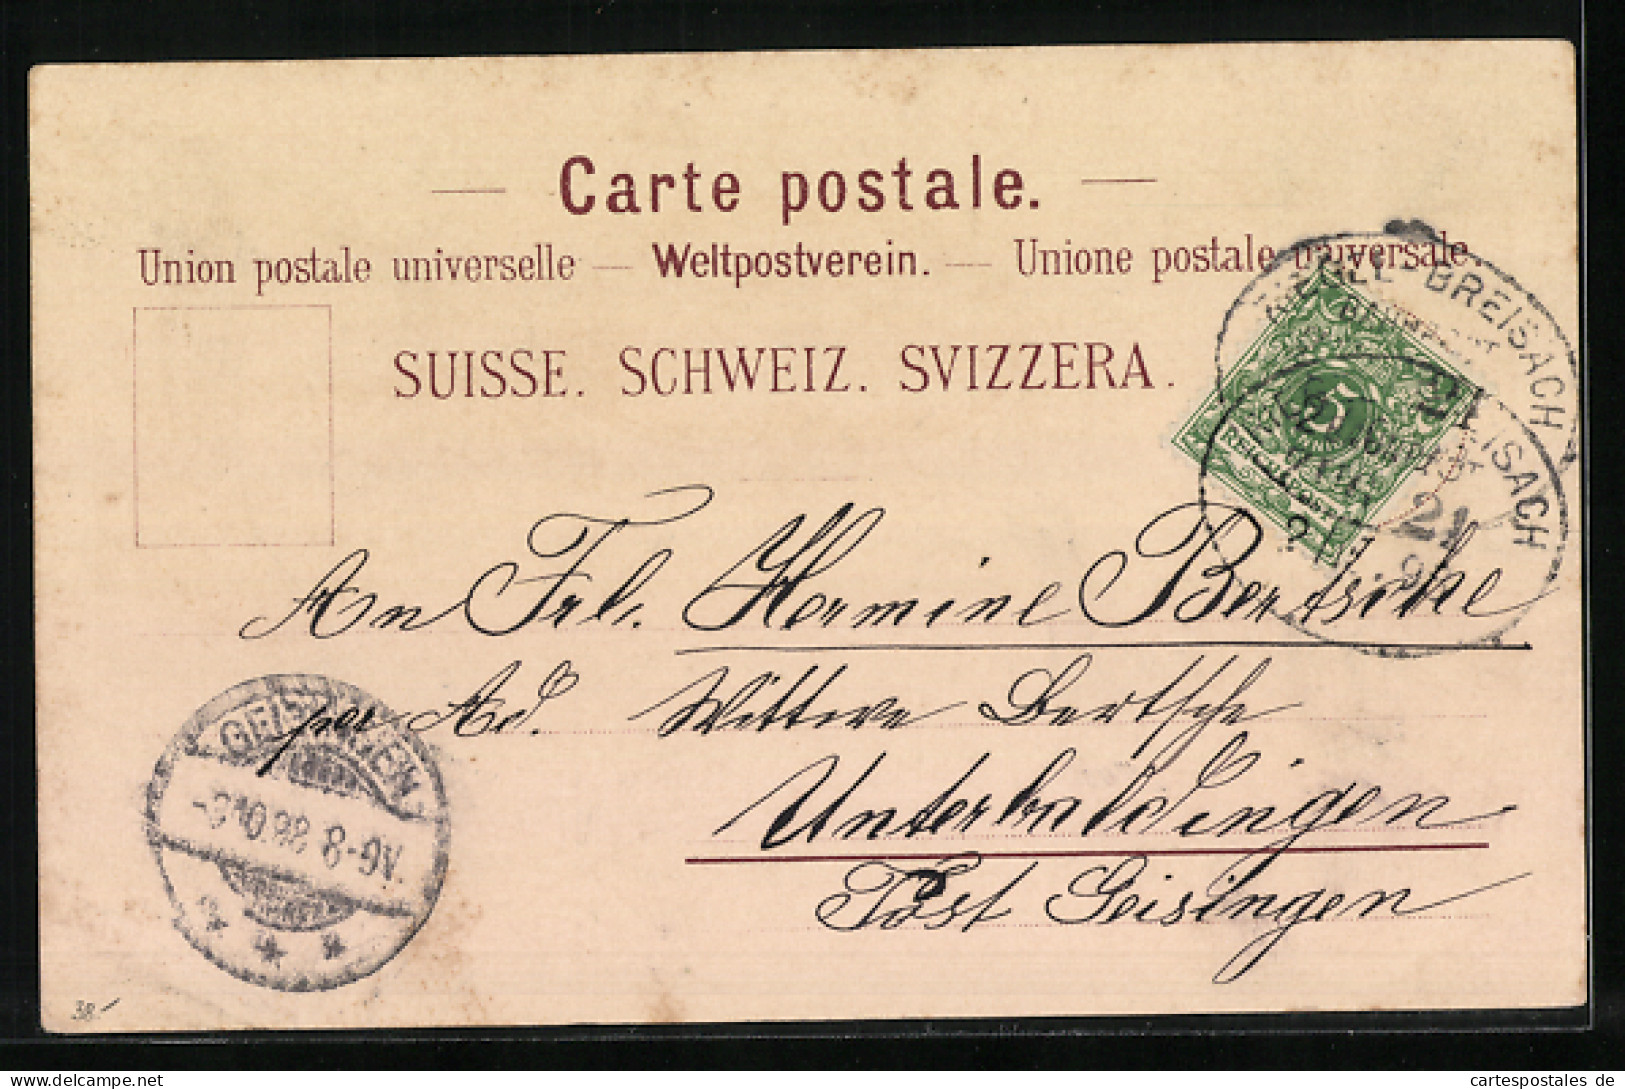 — Carte postale. —
Union postale universelle — Weltpostverein. — Unione postale universale.
SUISSE. SCHWEIZ. SVIZZERA.
BREISACH
21
5
REICHSPOST
BREISACH
21
An Frl. Hermine Bertsche
per Ad. Wittwe Bertsche
Unterbaldingen
Post Geisingen
GEISINGEN
10.98 8-9V.
38-
cartespostales de